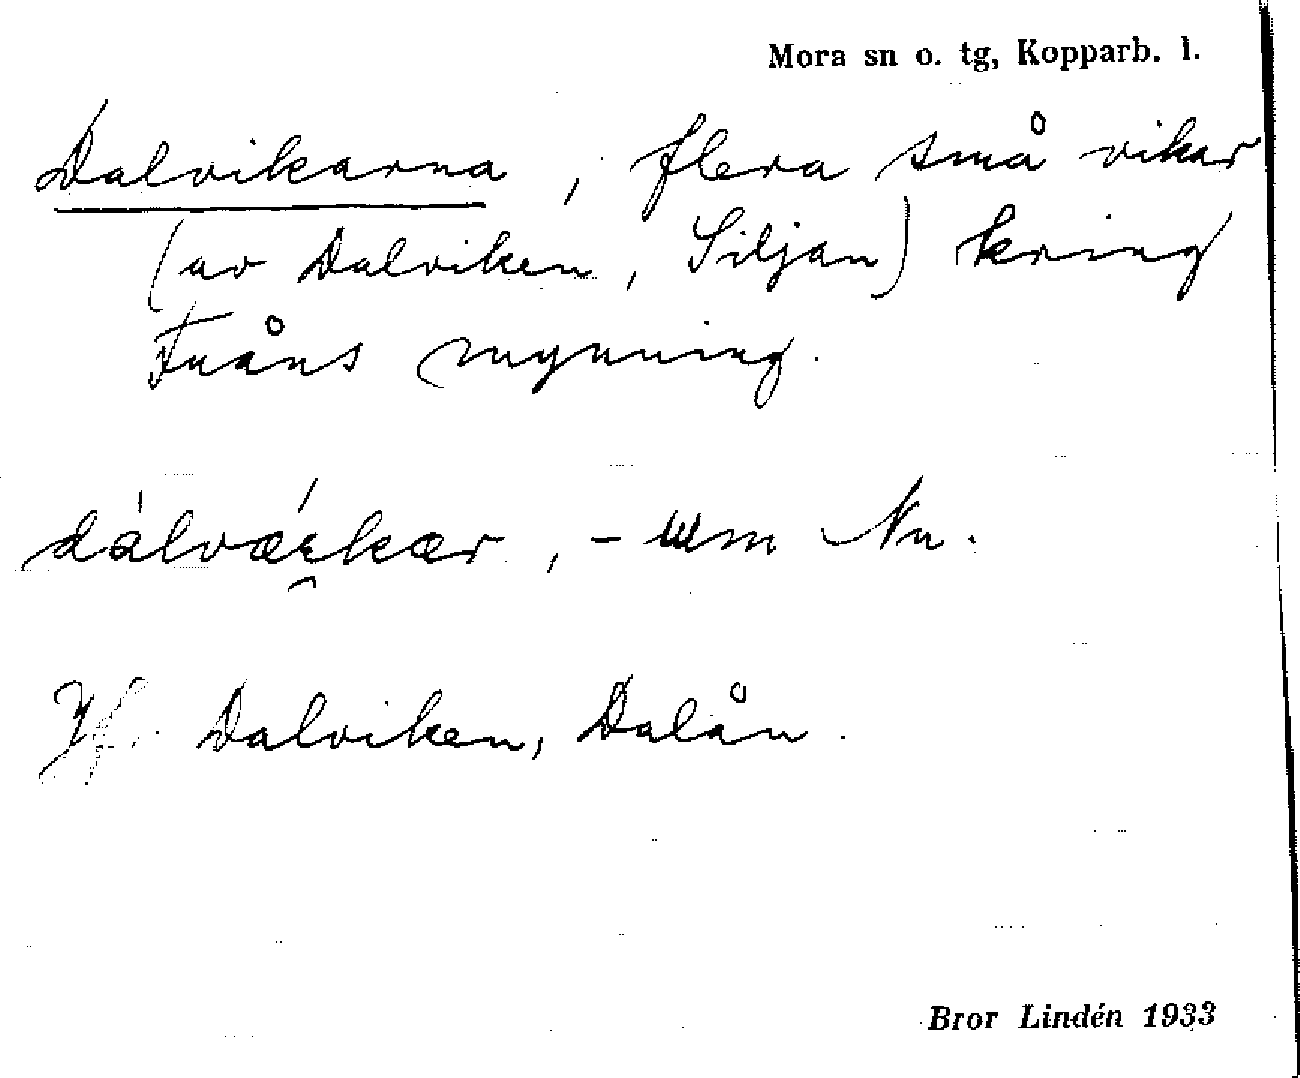 Mora sn o. tg, Kopparb. l.
Dalvikarna, flera små vikar
(av Dalviken, Siljan) kring
Fuåns mynning.
Nu.
Jf. Dalviken, Dalån.
Bror Lindén 1933